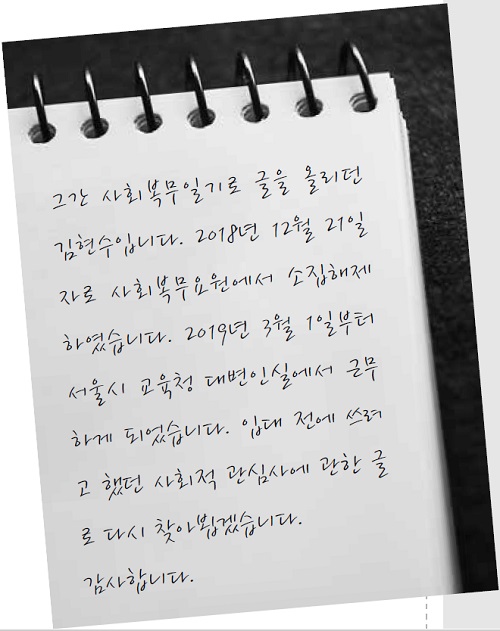 그간 사회복무일기로 글을 올리던
김현수입니다. 2018년 12월 21일
자로 사회복무요원에서 소집해제
하였습니다. 2019년 3월 1일부터
서울시 교육청 대변인실에서 근무
하게 되었습니다. 입대 전에 쓰려
고 했던 사회적 관심사에 관한 글
로 다시 찾아뵙겠습니다.
감사합니다.